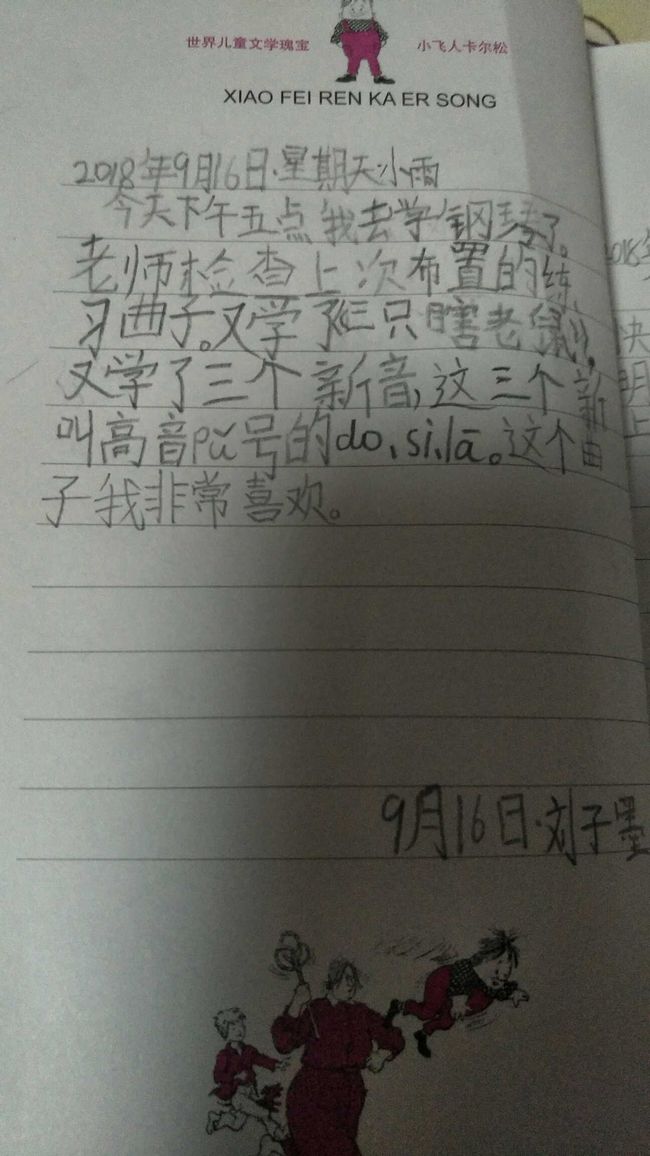 世界儿童文学瑰宝 小飞人卡尔松
XIAO FEI REN KA ER SONG
2018年9月16日·星期天小雨
今天下午五点我去学钢琴了。
老师检查上次布置的练
习曲子。又学了《三只瞎老鼠》,
又学了三个新音,这三个新
叫高音pǔ号的do、si、lā。这个曲
子我非常喜欢。
9月16日·刘子墨